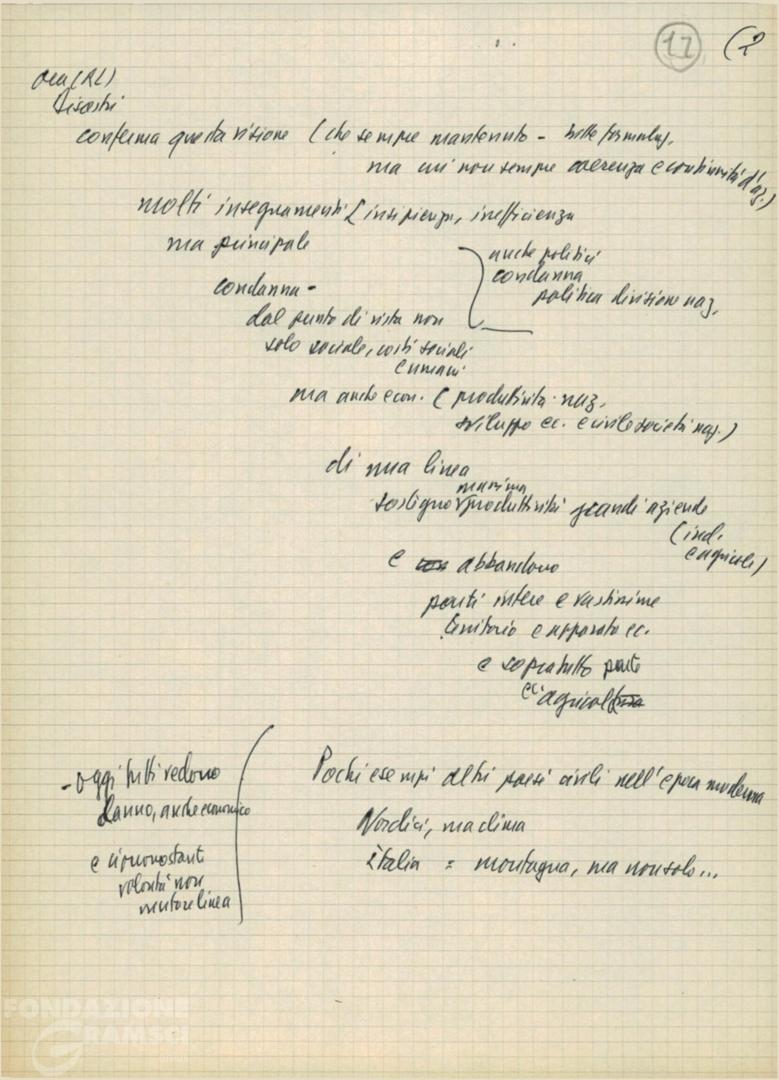 17 (2
ora (RL)
Disastri
conferma questa visione (che sempre mantenuto - nelle formulaz.
ma cui non sempre coerenza e continuità d'az.)
molti insegnamenti (insipienza, inefficienza
ma principale
anche politici
condanna
politica divisione naz.
condanna -
dal punto di vista non
solo sociale, costi sociali
e umani
ma anche econ. (produttività naz.
sviluppo ec. e civile società naz.)
di una linea
massima
sostegno produttività grandi aziende
(ind.
e agricole)
e abbandono
parti intere e vastissime
territorio e apparato ec.
e sopratutto parte
ec. agricol
- oggi tutti vedono
danno, anche economico
e ciononostante
volontà non
mutare linea
Pochi esempi altri paesi civili nell'epoca moderna
Nordici, ma clima
Italia = montagna, ma non solo...
FONDAZIONE
GRAMSCI